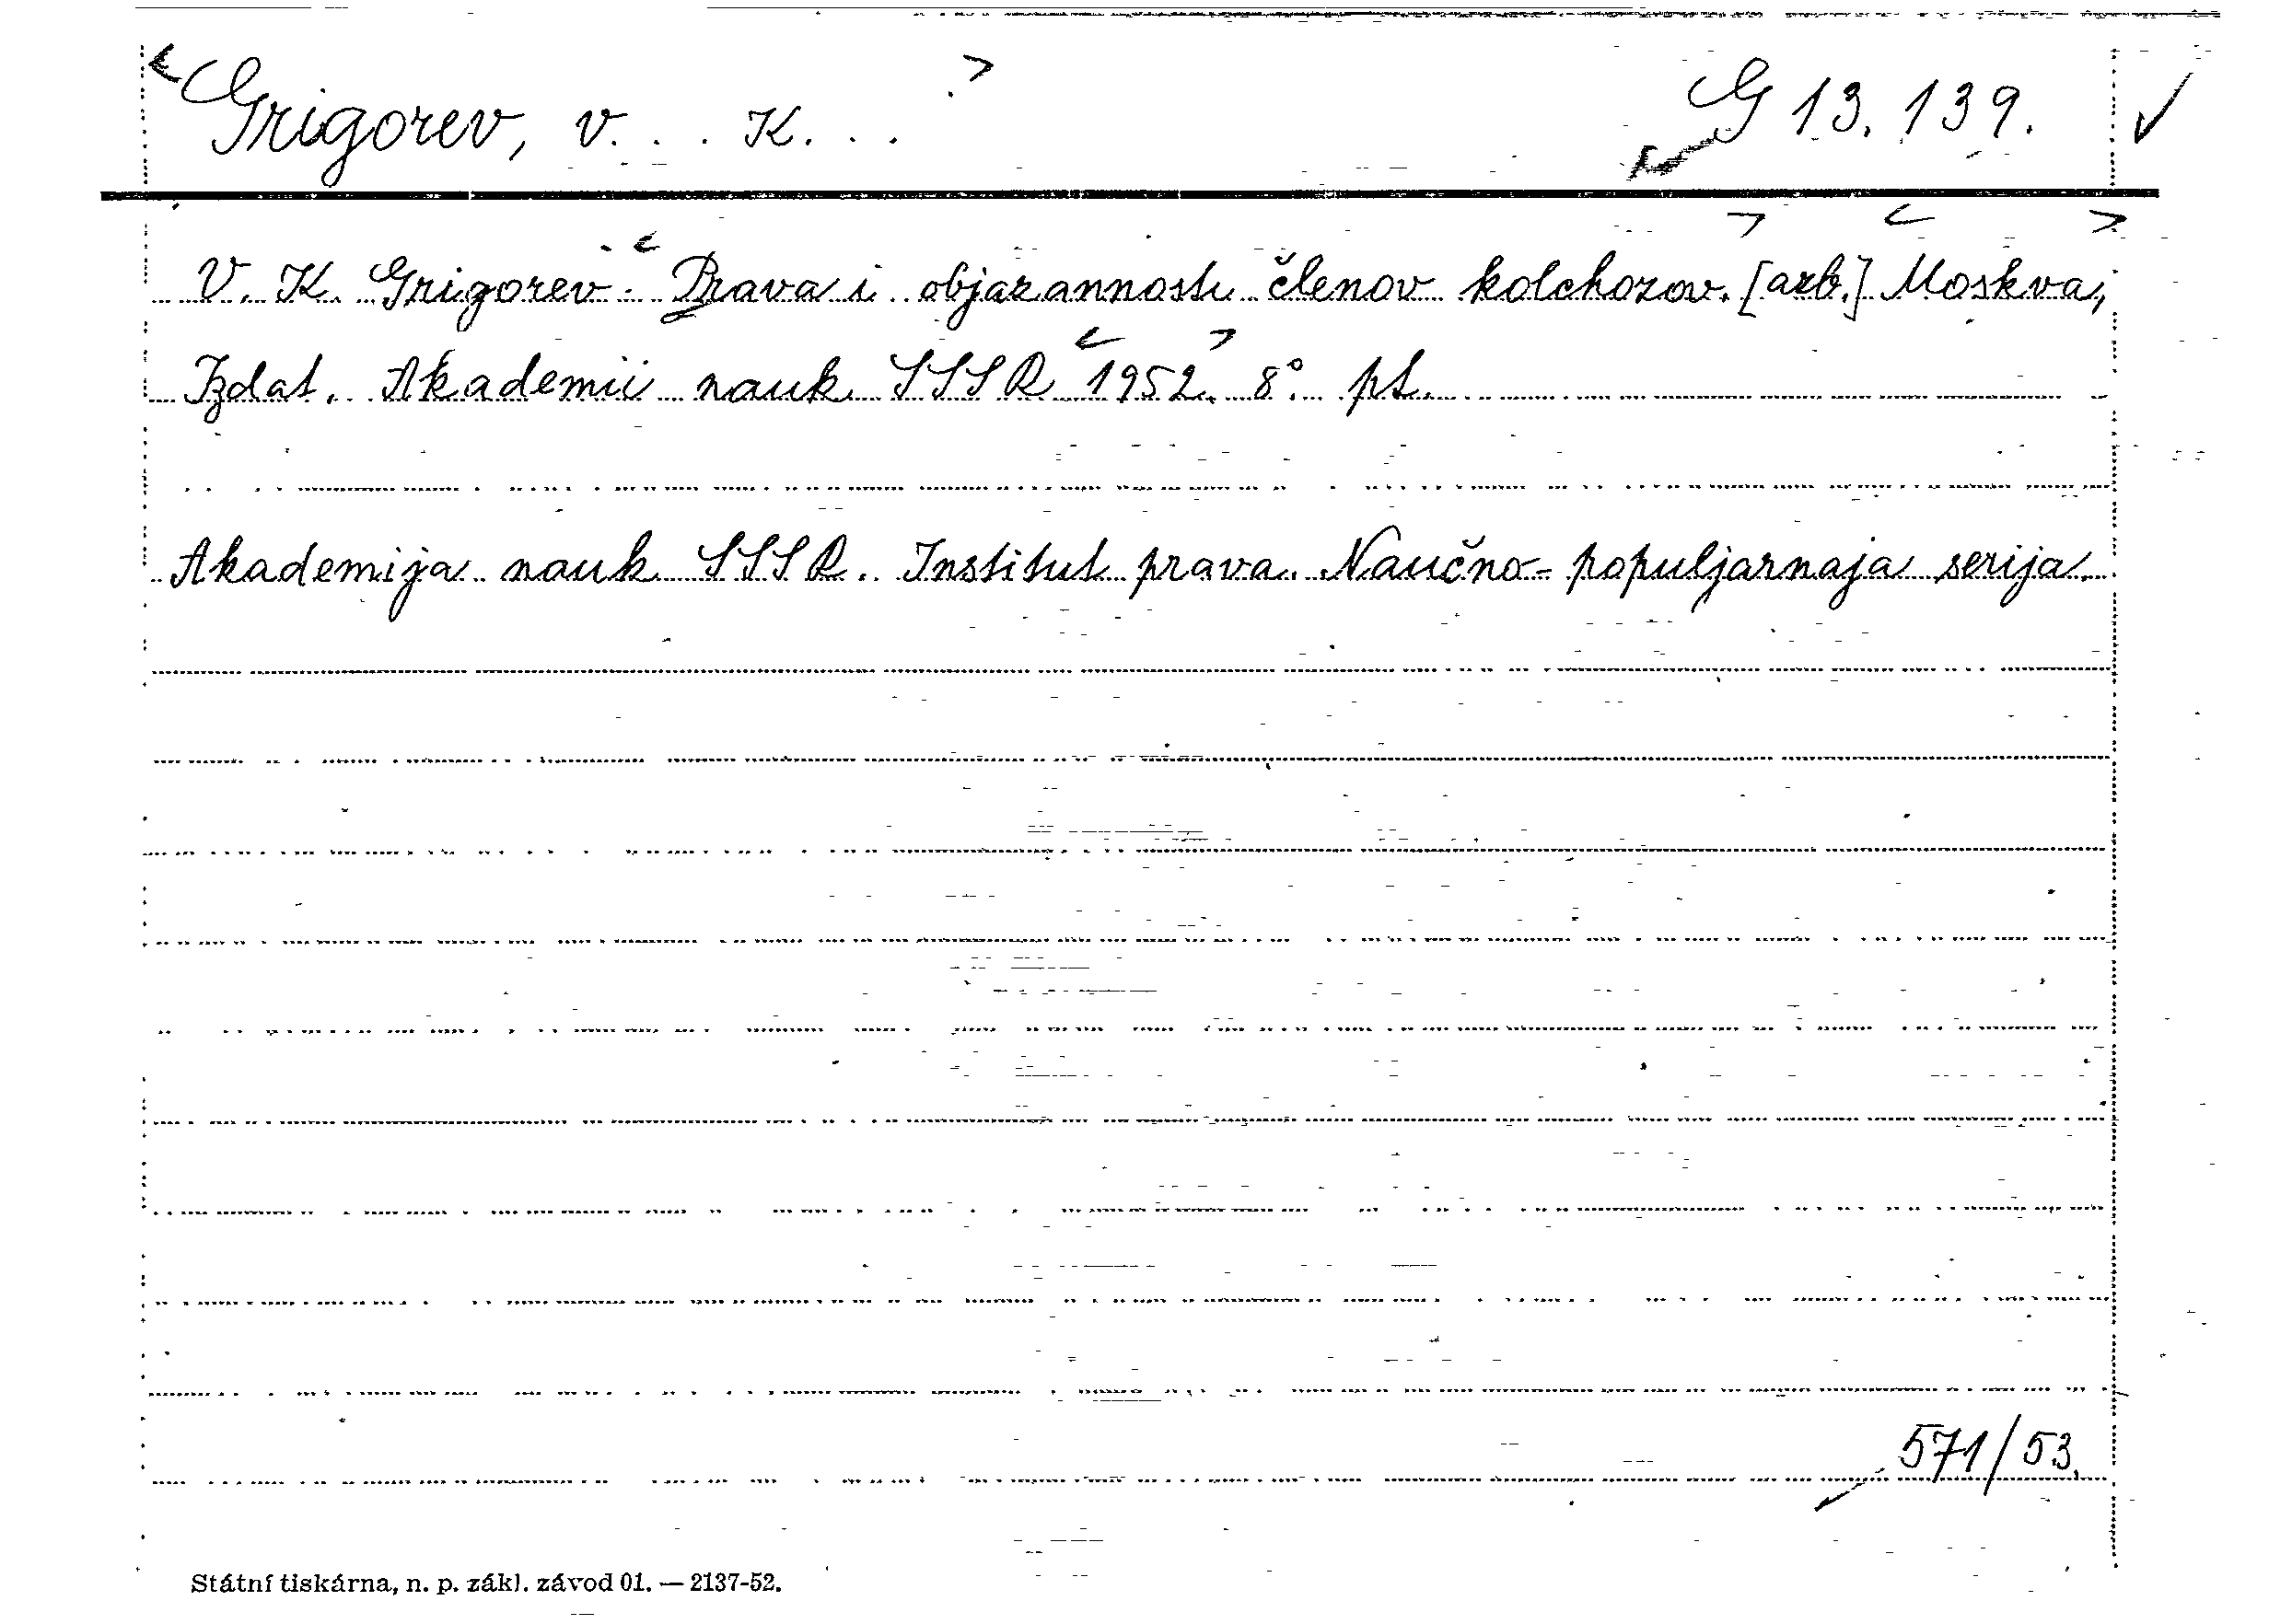 Grigorev, V... K... G 13.139.
V. K. Grigorev: Prava i objazannosti členov kolchozov. [azb.] Moskva,
Izdat. Akademii nauk SSSR 1952. 8° pt.
Akademija nauk SSSR. Institut prava. Naučno-populjarnaja serija.
571/53.
Státní tiskárna, n. p. zákl. závod 01. — 2137-52.